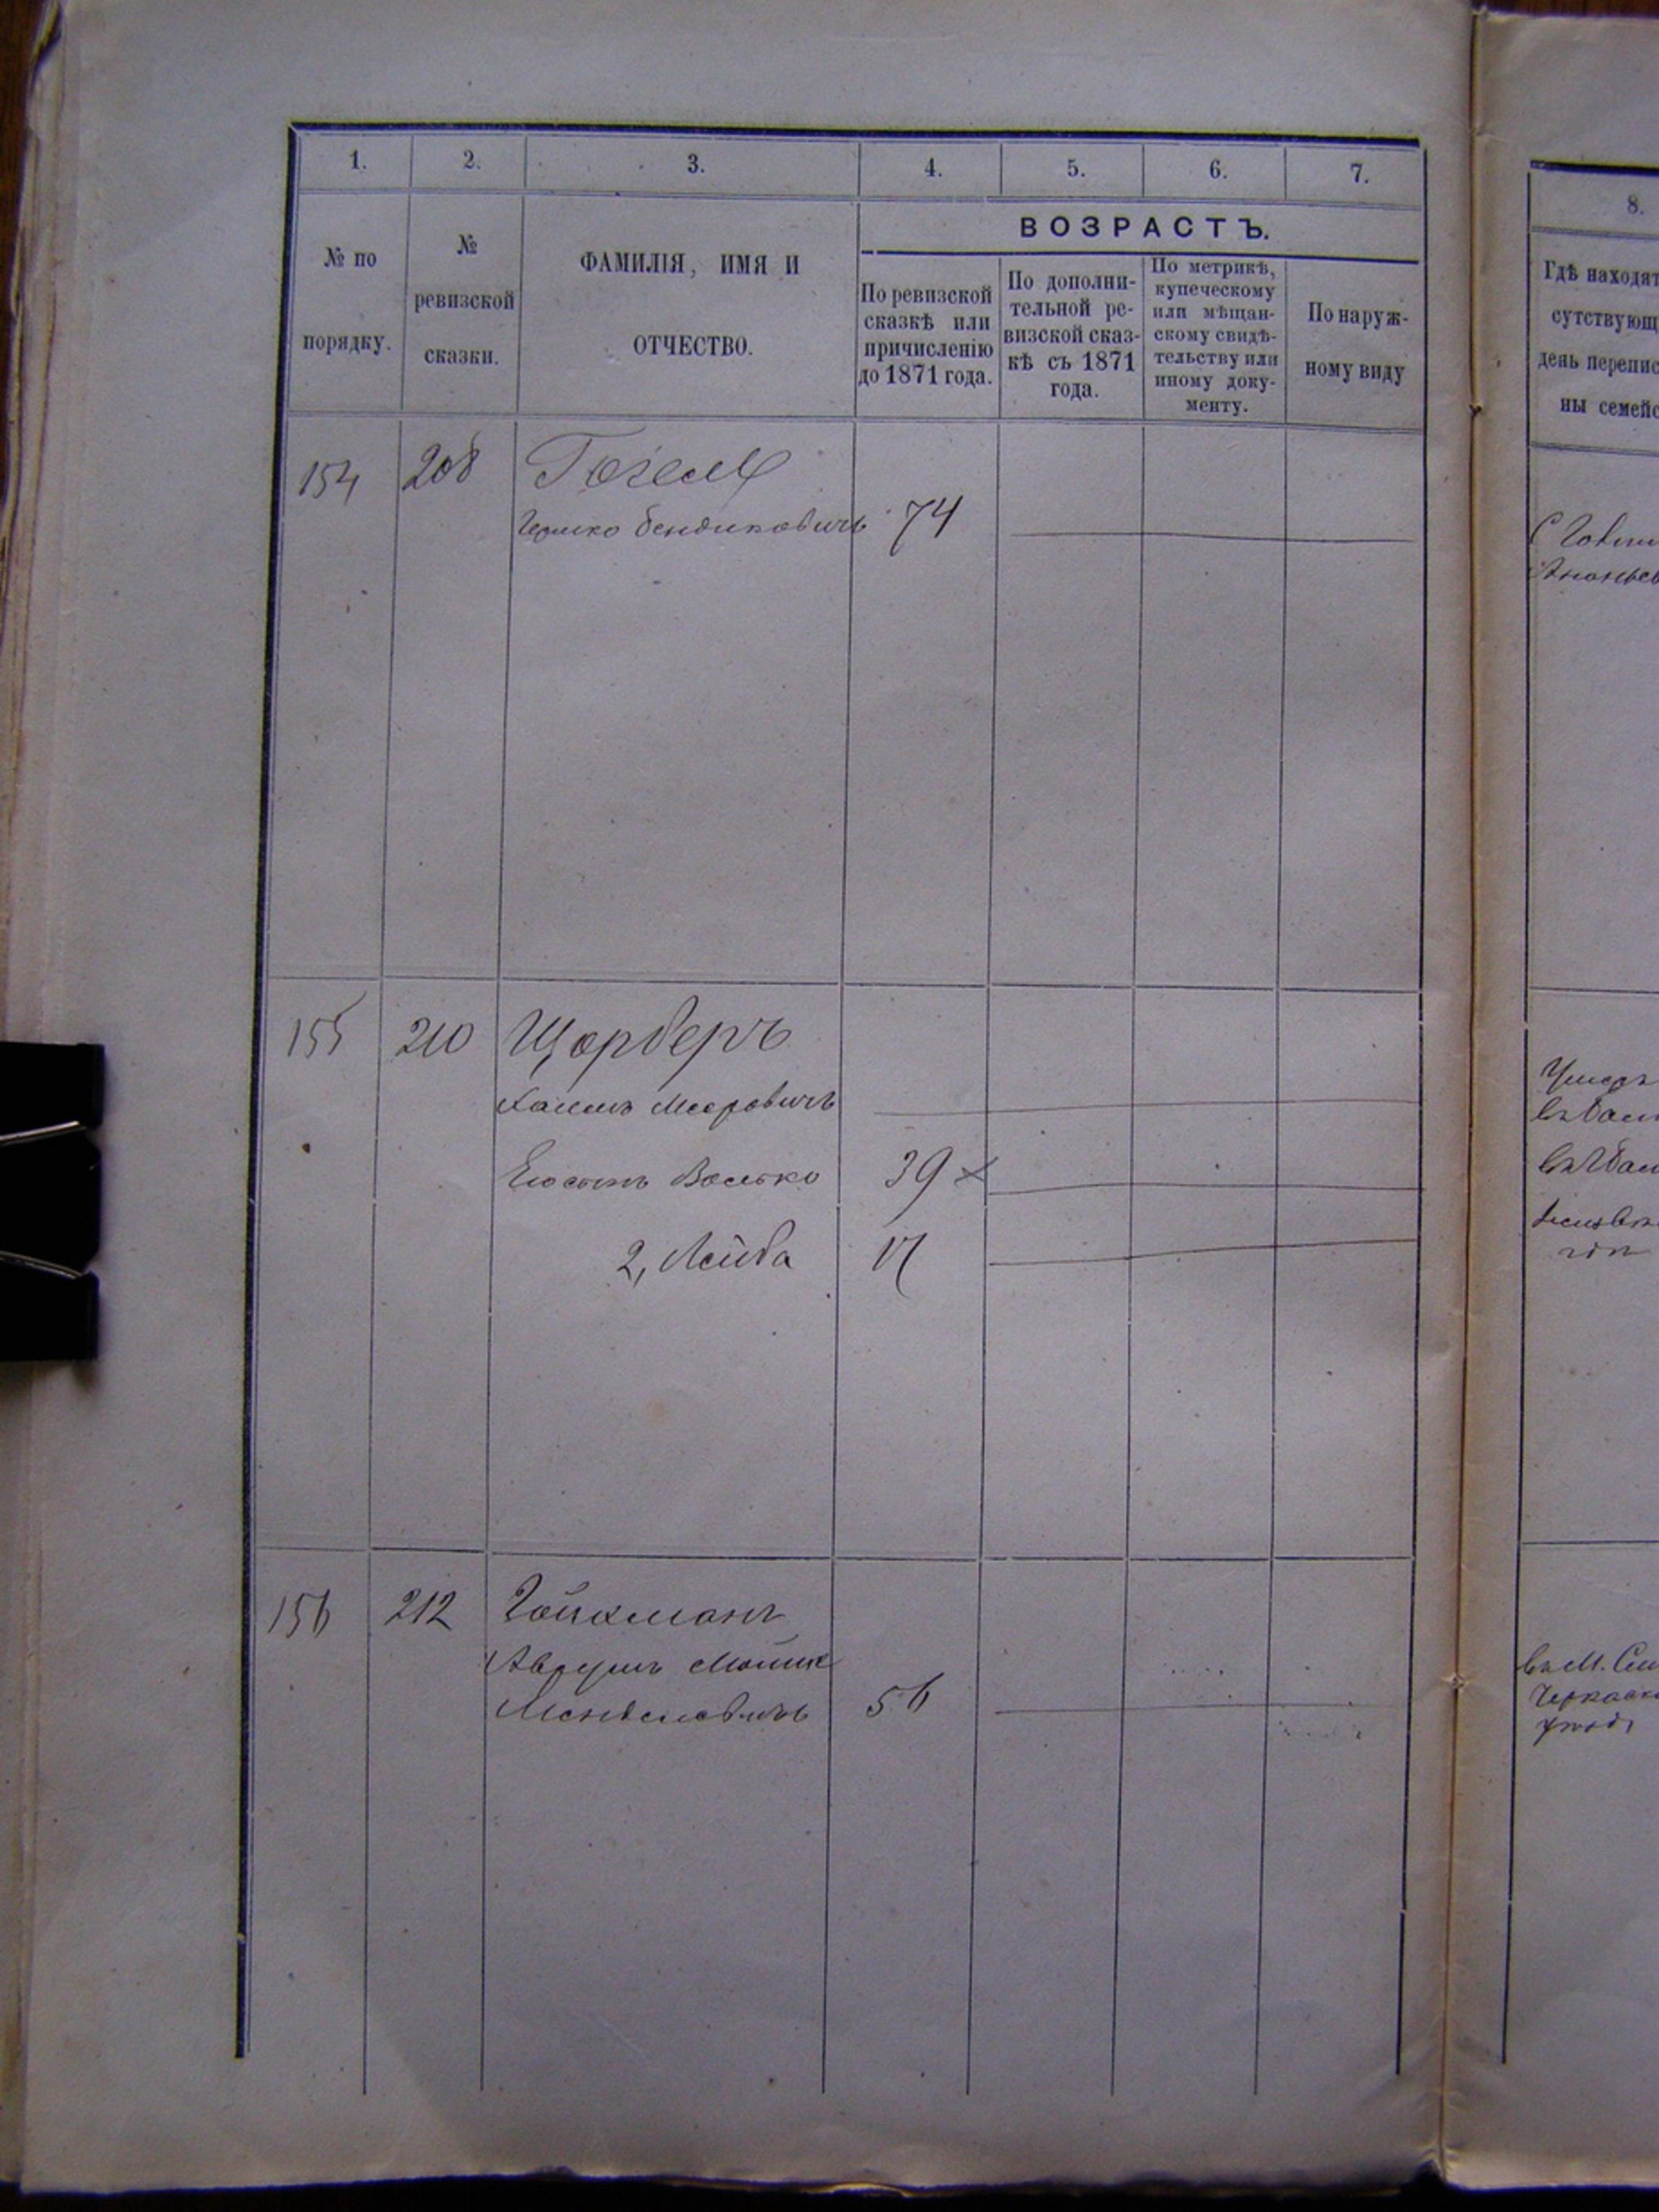 1. 2. 3. 4. 5. 6. 7.
№ по
порядку.
№
ревизской
сказки.
ФАМИЛІЯ, ИМЯ И
ОТЧЕСТВО.
ВОЗРАСТЪ.
По ревизской
сказкѣ или
причисленію
до 1871 года.
По дополни-
тельной ре-
визской сказ-
кѣ съ 1871
года.
По метрикѣ,
купеческому
или мѣщан-
скому свидѣ-
тельству или
иному доку-
менту.
По наруж-
ному виду
154 208
Гершко Бендиковичъ 74
155 210 Щорберъ
Хаимъ Мееровичъ
Его сынъ Волько 39
2, Лейба 17
156 212 Гойхманъ
Аврумъ
Менделевичъ 56
8.
Гдѣ находят
сутствующ
день перепис
ны семейс
Ананьев
Умеръ
въ М. См
Черкаск